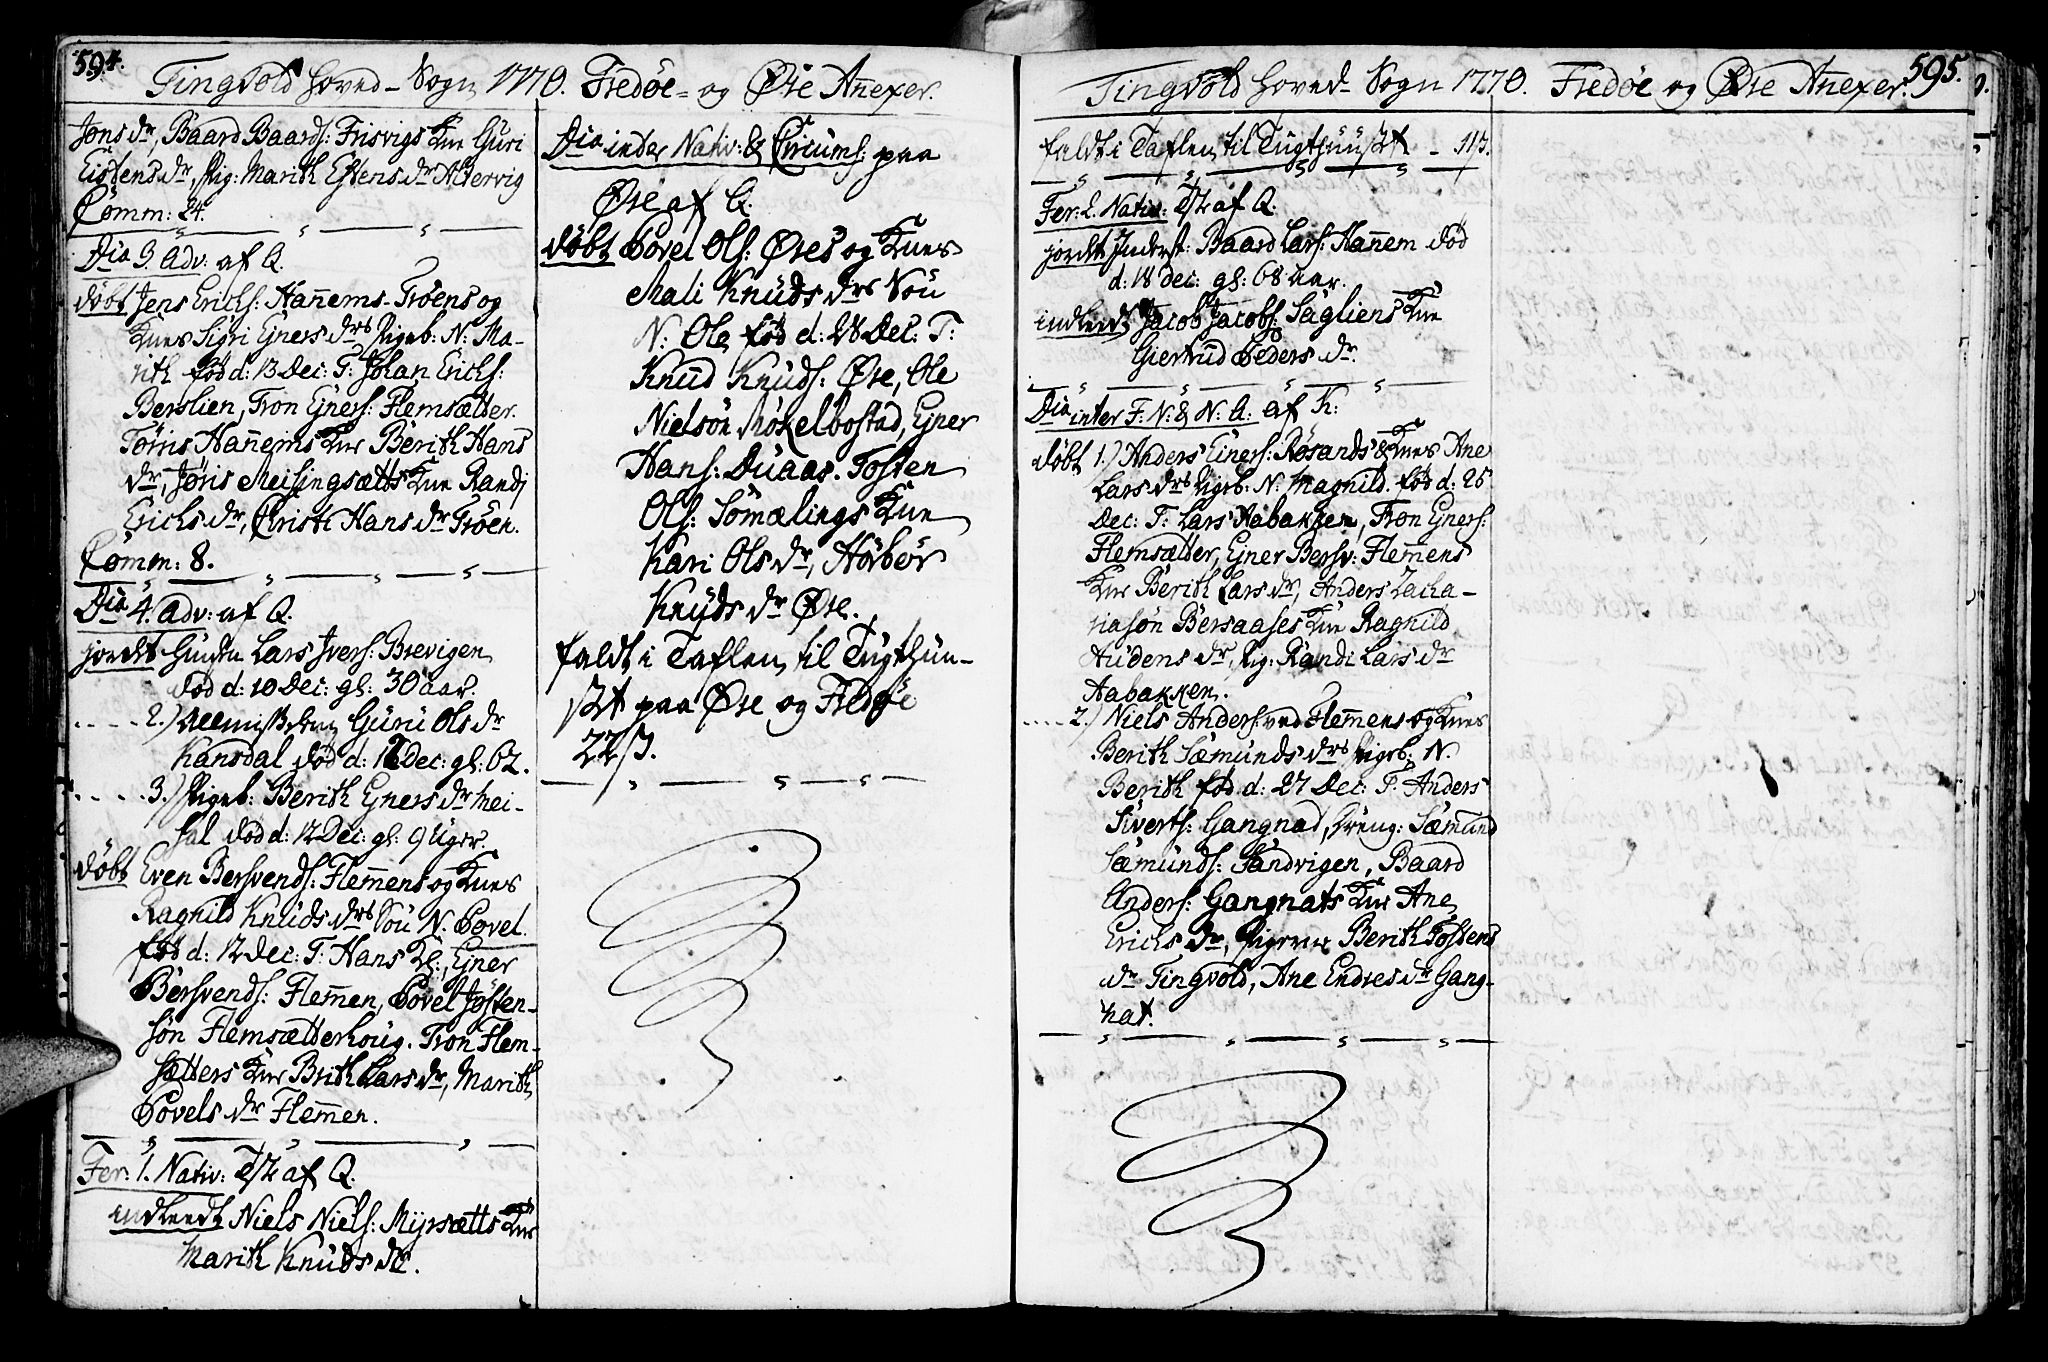 594.
Tingvold Hoved-Sogn 1770. Fredøe- og Øre Añexer.
Jons dr, Baard Baards: Frisvigs Kne Guri
Eistens dr, Pig: Marith Estens dr Altervig
Com̄: 24.
Dia 3. Adv: af Q.
døbt Jens Erichs: Hañems-Trøens og
Knes Sigri Ejners drs Pigeb: N: Ma-
rith fød d: 13 Dec: T: Johan Erichs:
Berslien, Tron Ejners: Flemsætter.
Tøris Hañems Kne Berith Hans
dr, Jøris Meisingsætts Kne Randj
Erichs dr, Christi Hans dr Trøen.
Com̄: 8.
Dia 4. Adv: af Q.
jordet Huusm Lars Jvers: Brevigen
død d: 10 Dec: gl: 30 aar.
2.) Allmisselem Guru Ols dr
Kansdal død d: 12 Dec: gl: 62.
3.) Pigeb: Berith Ejners dr Mei-
sal død d: 12 Dec: gl: 9 Uger.
døbt Even Bersvends: Flem̄ens og Knes
Ragnild Knuds drs Søn N. Povel.
fød d: 12 Dec: T: Hans Kl:, Ejner
Bersvends: Flem̄en, Povel Josten-
søn Flemsætterhoug. Tron Flem-
sætters Kne Brith Lars dr, Marith
Povels dr Flem̄en.
Fer: 1. Nativ: Xsti af Q.
indleedt Niels Niels: Myrsætts Kne
Marith Knuds dr.
Dia inter Nativ: & Circums: paa
Øre af Q.
døbt Povel Ols: Øres og Knes
Mali Knuds drs Søn
N: Ole fød d: 28 Dec: T:
Knud Knuds: Øre, Ole
Nielsøn Møkelbostad, Ejner
Hans: Duaas. Tosten
Ols: Sømælings Kne
Kari Ols dr, Hørbør
Knuds dr Øre.
faldt i Taflen til Tugthuu-
set paa Øre og Fredøe
22 s.
595.
Tingvold Hoved-Sogn 1770. Fredøe og Øre Añexer.
faldt i Taflen til Tugthuuset - 11 s.
Fer: 2. Nativ: Xsti af Q.
jordet Inderst: Baard Lars: Hañem død
d: 18 Dec: gl: 68 aar.
indleedt Jacob Jacobs: Sagliens Kne
Giertrud Peders dr.
Dia inter F: N: & N: A: af K:
døbt 1.) Anders Einers: Røsands & Knes Ane
Lars drs Pigeb: N: Magnild. fød d: 25
Dec: T: Lars Aabakken, Tron Ejners:
Flemsætter, Ejner Bersv: Flem̄ens
Kne Berith Lars dr, Anders Zacha-
riasøn Bersaases Kne Ragnild
Audens dr, Pig: Randi Lars dr
Aabakken.
2.) Niels Anders: ved Flem̄ens og Knes
Berith Sæmunds drs Pigeb: N.
Berith fød d: 27 Dec: T: Anders
Siverts: Gangnad, Dreng: Sæmund
Sæmunds: Sandvigen, Baard
Anders: Gangnats Kne Ane
Erichs dr, Pigerne Berith Tostens
dr Tingvold, Ane Endres dr Gang-
nat.